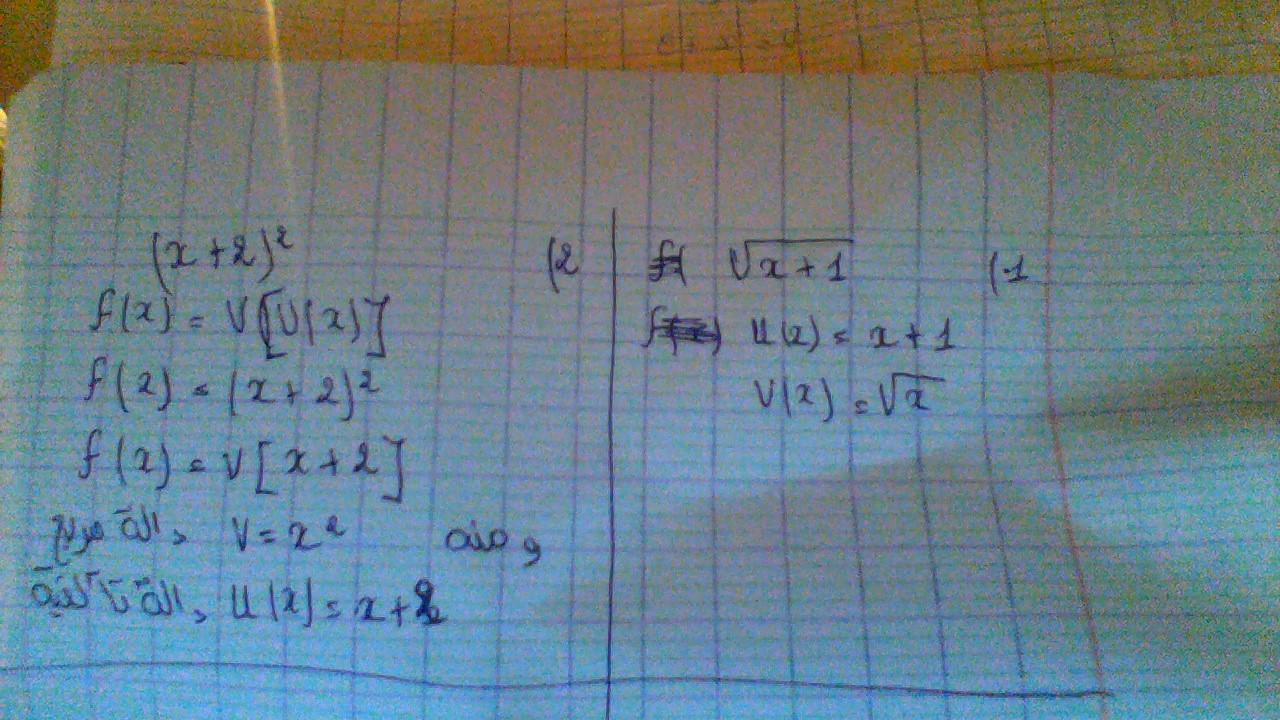 (1 √x+1
u(x) = x+1
V(x) = √x
(2 (x+2)²
f(x) = V[U(x)]
f(x) = (x+2)²
f(x) = V[x+2]
ومنه V = x² دالة مربع
U(x) = x+2 دالة تآلفية